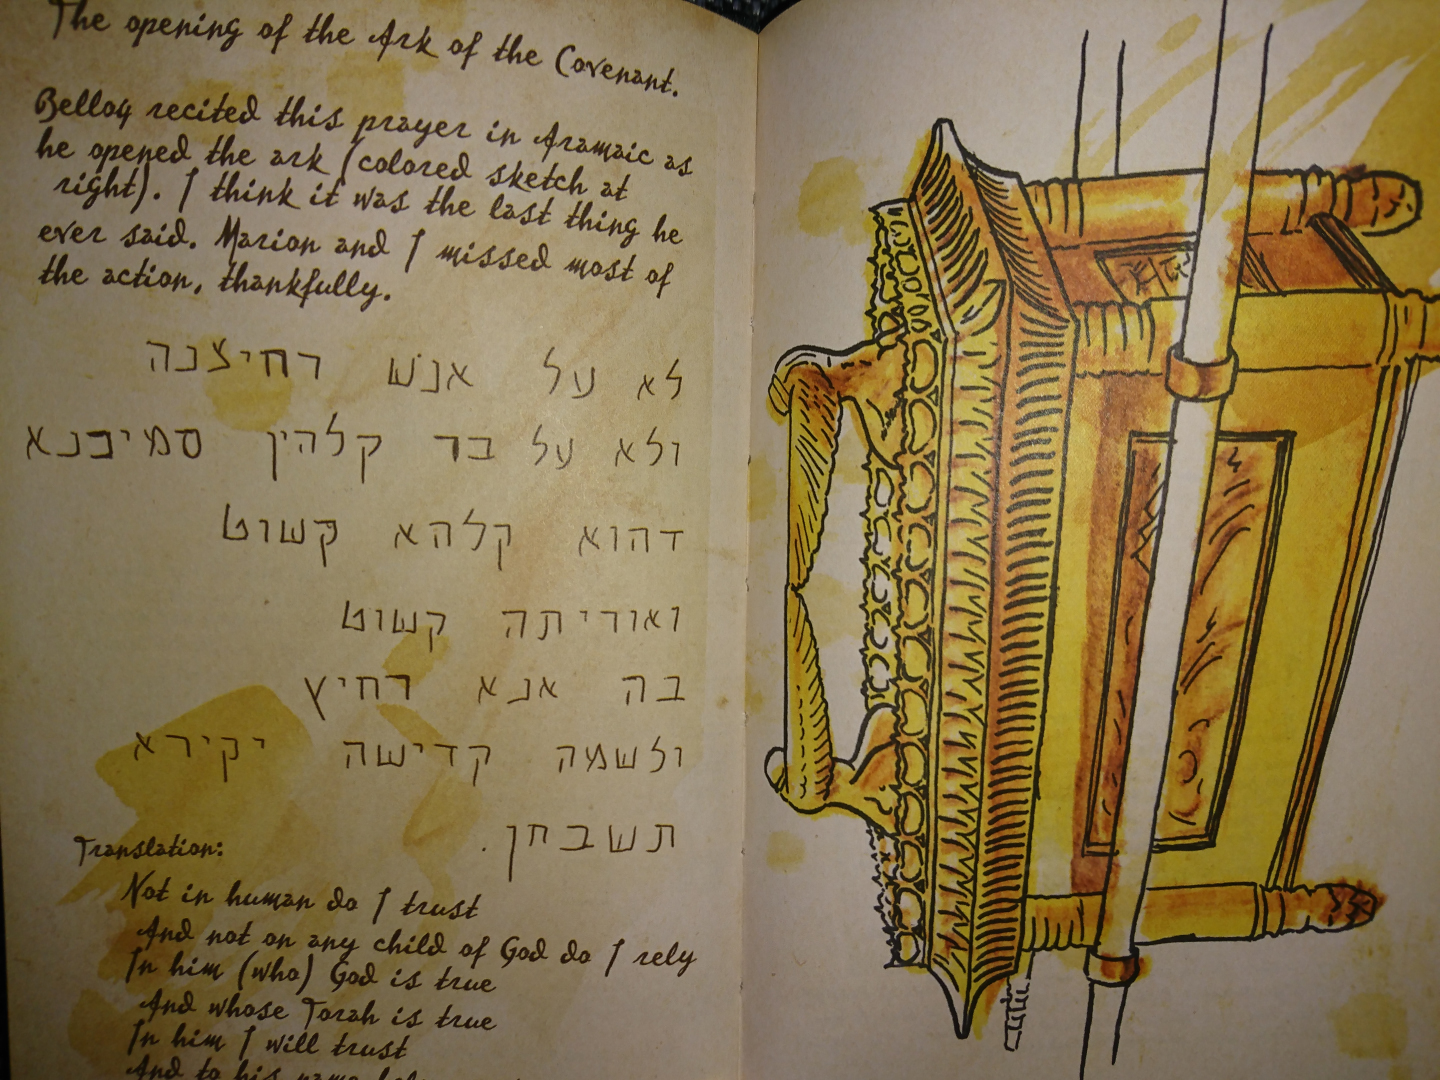 The opening of the Ark of the Covenant.
Belloq recited this prayer in Aramaic as
he opened the ark (colored sketch at
right). I think it was the last thing he
ever said. Marion and I missed most of
the action, thankfully.
לא על אנשׁ רחיצנה
ולא על בר קלהין סמיכנא
דהוא קלהא קשוט
ואוריתה קשוט
בה אנא רחיץ
ולשמה קדישה יקירא
תשבחן.
Translation:
Not in human do I trust
And not on any child of God do I rely
In him (who) God is true
And whose Torah is true
In him I will trust
And to his name